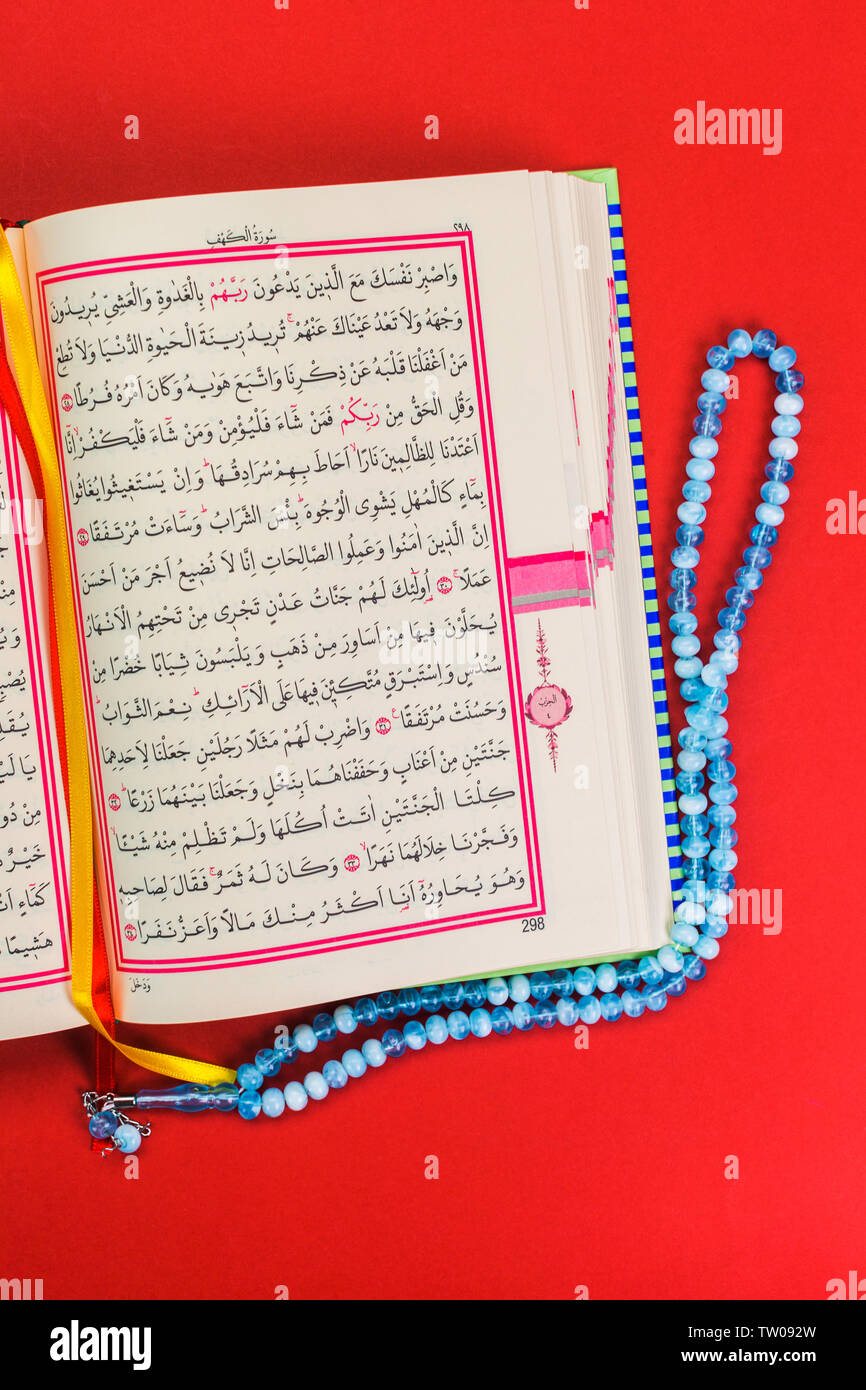 سُورَةُ الْكَهْفِ
٢٩٨
وَاصْبِرْ نَفْسَكَ مَعَ الَّذٖينَ يَدْعُونَ رَبَّهُمْ بِالْغَدٰوةِ وَالْعَشِيِّ يُرٖيدُونَ
وَجْهَهُ وَلَا تَعْدُ عَيْنَاكَ عَنْهُمْ ۚ تُرٖيدُ زٖينَةَ الْحَيٰوةِ الدُّنْيَا وَلَا تُطِعْ
مَنْ اَغْفَلْنَا قَلْبَهُ عَنْ ذِكْرِنَا وَاتَّبَعَ هَوٰيهُ وَكَانَ اَمْرُهُ فُرُطًا ﴿٢٨﴾
وَقُلِ الْحَقُّ مِنْ رَبِّكُمْ فَمَنْ شَٓاءَ فَلْيُؤْمِنْ وَمَنْ شَٓاءَ فَلْيَكْفُرْ ۙ اِنَّٓا
اَعْتَدْنَا لِلظَّالِمٖينَ نَارًا ۙ اَحَاطَ بِهِمْ سُرَادِقُهَا ۜ وَاِنْ يَسْتَغٖيثُوا يُغَاثُوا
بِمَٓاءٍ كَالْمُهْلِ يَشْوِي الْوُجُوهَ ۜ بِئْسَ الشَّرَابُ ۜ وَسَٓاءَتْ مُرْتَفَقًا ﴿٢٩﴾
اِنَّ الَّذٖينَ اٰمَنُوا وَعَمِلُوا الصَّالِحَاتِ اِنَّا لَا نُضٖيعُ اَجْرَ مَنْ اَحْسَنَ
عَمَلًا ۚ ﴿٣٠﴾ اُولٰٓئِكَ لَهُمْ جَنَّاتُ عَدْنٍ تَجْرٖي مِنْ تَحْتِهِمُ الْاَنْهَارُ
يُحَلَّوْنَ فٖيهَا مِنْ اَسَاوِرَ مِنْ ذَهَبٍ وَيَلْبَسُونَ ثِيَابًا خُضْرًا مِنْ
سُنْدُسٍ وَاِسْتَبْرَقٍ مُتَّكِـٖٔينَ فٖيهَا عَلَى الْاَرَٓائِكِ ۜ نِعْمَ الثَّوَابُ ۜ
وَحَسُنَتْ مُرْتَفَقًا ۟ ﴿٣١﴾ وَاضْرِبْ لَهُمْ مَثَلًا رَجُلَيْنِ جَعَلْنَا لِاَحَدِهِمَا
جَنَّتَيْنِ مِنْ اَعْنَابٍ وَحَفَفْنَاهُمَا بِنَخْلٍ وَجَعَلْنَا بَيْنَهُمَا زَرْعًا ۜ ﴿٣٢﴾
كِلْتَا الْجَنَّتَيْنِ اٰتَتْ اُكُلَهَا وَلَمْ تَظْلِمْ مِنْهُ شَيْـًٔا ۙ
وَفَجَّرْنَا خِلَالَهُمَا نَهَرًا ۙ ﴿٣٣﴾ وَكَانَ لَهُ ثَمَرٌ ۚ فَقَالَ لِصَاحِبِهٖ
وَهُوَ يُحَاوِرُهُٓ اَنَا اَكْثَرُ مِنْكَ مَالًا وَاَعَزُّ نَفَرًا ﴿٣٤﴾
298
وَدَخَلَ
الحزب
٤
خَيْرٌ
هَشٖيمًا
a alamy
alamy
Image ID: TW092W
www.alamy.com